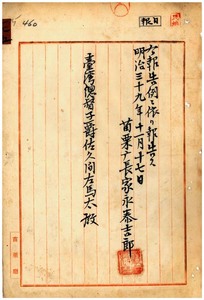 460
日報
右報告例ニ依リ報告ス
明治三十九年十月十七日
苗栗廳長家永泰吉郎
臺灣總督子爵佐久間左馬太殿
苗栗廳